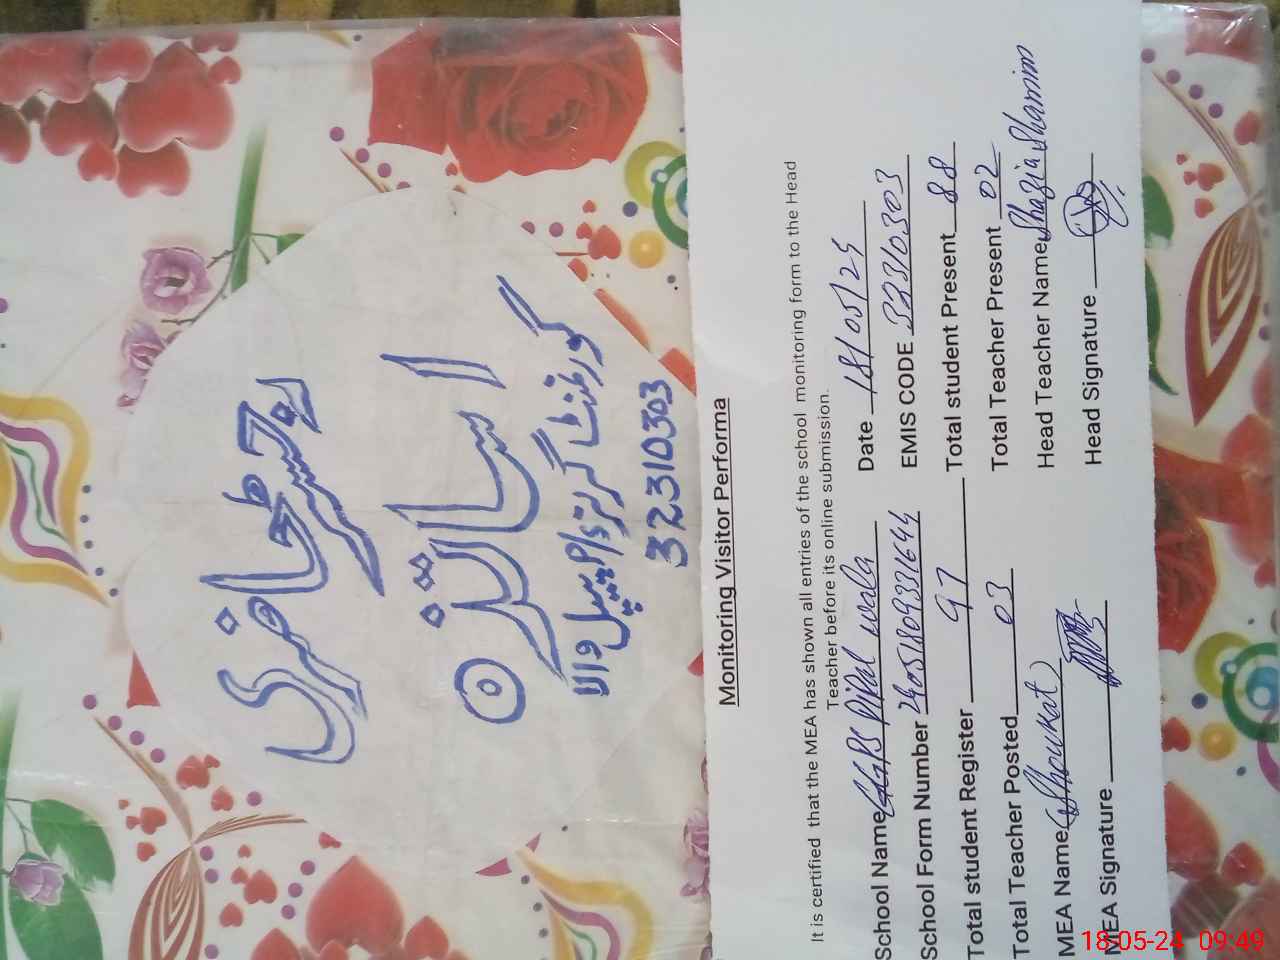 رجسٹر حاضری
اساتذہ
گورنمنٹ گرلز پرائمری سکول پیپل والا
32310303
Monitoring Visitor Performa
It is certified that the MEA has shown all entries of the school monitoring form to the Head
Teacher before its online submission.
School Name GGPS Pipal wala Date 18/05/24
School Form Number EMIS CODE 32310303
Total student Register 97 Total student Present 88
Total Teacher Posted 03 Total Teacher Present 02
MEA Name (Showkat) Head Teacher Name Shazia Shamim
MEA Signature Head Signature
18-05-24 09:49